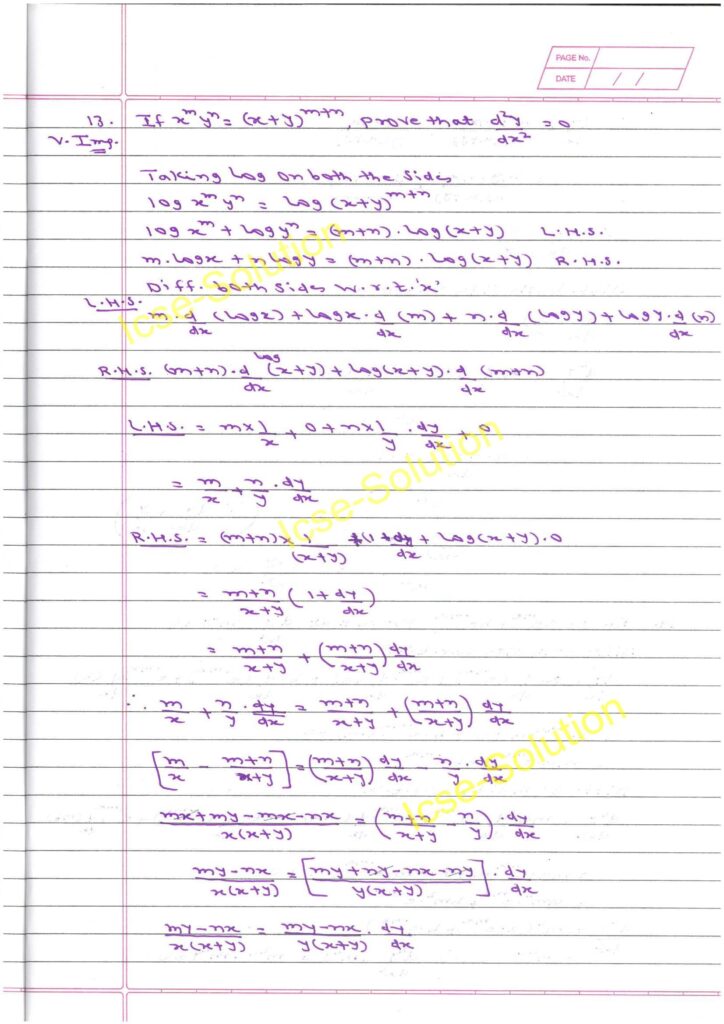 PAGE No.
DATE / /
13. If x^m y^n = (x+y)^{m+n}, prove that d²y/dx² = 0
V. Imp.
Taking Log on both the sides
log x^m y^n = log (x+y)^{m+n}
log x^m + log y^n = (m+n) . log (x+y) L.H.S.
m. log x + n log y = (m+n) . log (x+y) R.H.S.
Diff. both sides w.r.t. 'x'
L.H.S.
m. d/dx (log x) + log x . d/dx (m) + n. d/dx (log y) + log y. d/dx (n)
R.H.S. (m+n) . d/dx log (x+y) + log (x+y) . d/dx (m+n)
L.H.S. = m × 1/x + 0 + n × 1/y . dy/dx + 0
= m/x + n/y . dy/dx
R.H.S. = (m+n) × 1/(x+y) (1 + dy/dx + log (x+y) . 0
= m+n/x+y (1 + dy/dx)
= m+n/x+y + (m+n/x+y) dy/dx
∴ m/x + n/y . dy/dx = m+n/x+y + (m+n/x+y) dy/dx
[m/x - m+n/x+y] = (m+n/x+y) dy/dx - n/y . dy/dx
mx+my-mx-nx/x(x+y) = (m+n/x+y - n/y) . dy/dx
my-nx/x(x+y) = [my+ny-nx-ny/y(x+y)] . dy/dx
my-nx/x(x+y) = my-nx/y(x+y) . dy/dx
Icse-Solution
Icse-Solution
Icse-Solution